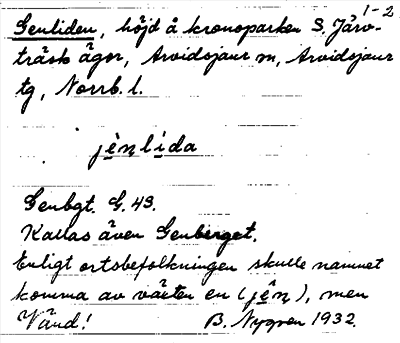 1-2
Genliden, höjd å kronoparken S. Järv-
träsk ägor, Arvidsjaur sn, Arvidsjaur
tg, Norrb. l.
jènlida
Genbgt. G. 43.
Kallas även Genberget.
Enligt ortsbefolkningen skulle namnet
komma av växten en (jên), men
Vänd! B. Nygren 1932.